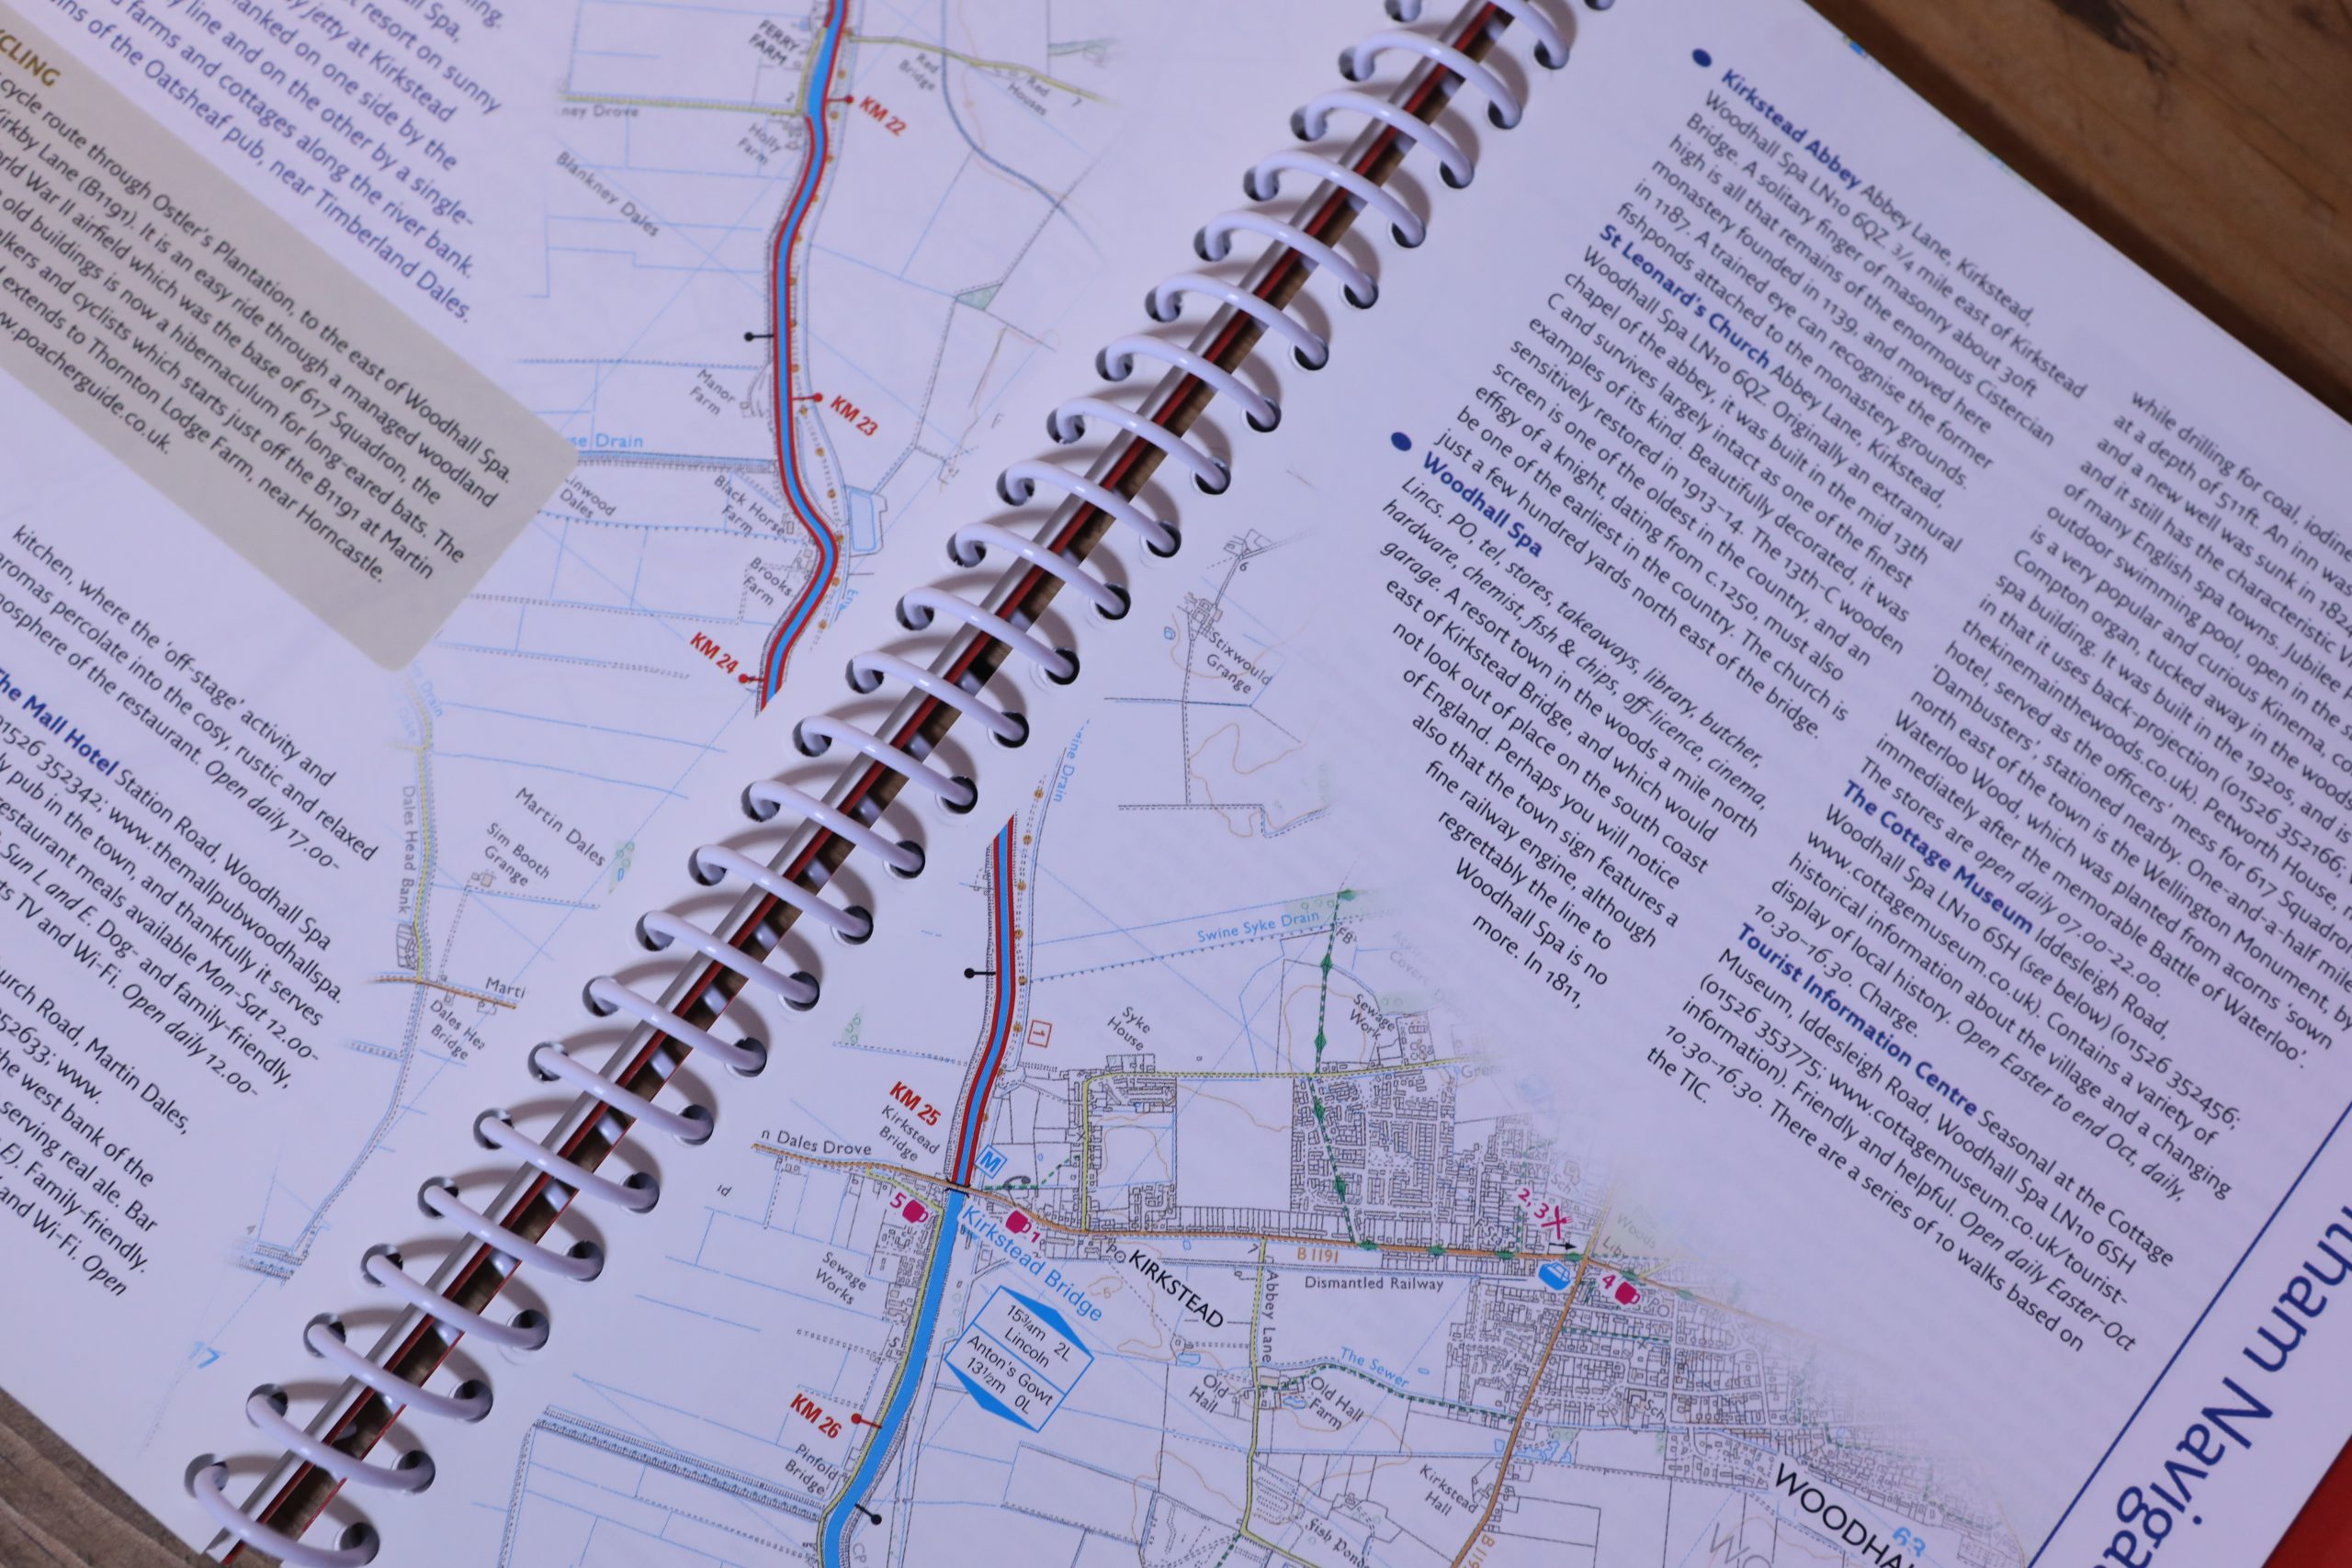 hall Spa,
t resort on sunny
jetty at Kirkstead
flanked on one side by the
line and on the other by a single-
farms and cottages along the river bank.
of the Oatsheaf pub, near Timberland Dales.
CLING
cycle route through Ostler's Plantation, to the east of Woodhall Spa.
Kirkby Lane (B1191). It is an easy ride through a managed woodland
World War II airfield which was the base of 617 Squadron, the
old buildings is now a hibernaculum for long-eared bats. The
lkers and cyclists which starts just off the B1191 at Martin
extends to Thornton Lodge Farm, near Horncastle.
w.poacherguide.co.uk.
kitchen, where the 'off-stage' activity and
aromas percolate into the cosy, rustic and relaxed
mosphere of the restaurant. Open daily 17.00-
The Mall Hotel Station Road, Woodhall Spa
01526 352342; www.themallpubwoodhallspa.
ly pub in the town, and thankfully it serves
restaurant meals available Mon-Sat 12.00-
Sun L and E. Dog- and family-friendly,
ts TV and Wi-Fi. Open daily 12.00-
urch Road, Martin Dales,
52633; www.
the west bank of the
serving real ale. Bar
E). Family-friendly.
and Wi-Fi. Open
17
FERRY
FARM
2
ney Drove
Holly
Farm
Red
Bridge
Red
Houses
7
KM 22
Blankney Dales
Manor
Farm
KM 23
se Drain
Linwood
Dales
Black Horse
Farm
Brooks
Farm
KM 24
Dales Head Bank
Martin Dales
Sim Booth
Grange
Marti
Dales He
Bridge
4
6
Stixwould
Grange
Swine Syke Drain
FB
Syke
House
Sewage
Work
1
KM 25
Kirkstead
Bridge
M
n Dales Drove
5
1
Kirkstead Bridge
PO
KIRKSTEAD
7
B 1191
Dismantled Railway
Abbey Lane
2, 3
4
PO
Sch
Sewage
Works
15¾m 2L
Lincoln
Anton's Gowt
13½m 0L
The Sewer
Old
Hall
Old Hall
Farm
Sch
KM 26
Pinfold
Bridge
Kirkstead
Hall
fish Ponds
CP
WOODHAL
63
• Kirkstead Abbey Abbey Lane, Kirkstead,
Woodhall Spa LN10 6QZ. 3/4 mile east of Kirkstead
Bridge. A solitary finger of masonry about 30ft
high is all that remains of the enormous Cistercian
monastery founded in 1139, and moved here
in 1187. A trained eye can recognise the former
fishponds attached to the monastery grounds.
St Leonard's Church Abbey Lane, Kirkstead,
Woodhall Spa LN10 6QZ. Originally an extramural
chapel of the abbey, it was built in the mid 13th
C and survives largely intact as one of the finest
examples of its kind. Beautifully decorated, it was
sensitively restored in 1913–14. The 13th-C wooden
screen is one of the oldest in the country, and an
effigy of a knight, dating from c.1250, must also
be one of the earliest in the country. The church is
just a few hundred yards north east of the bridge.
• Woodhall Spa
Lincs. PO, tel, stores, takeaways, library, butcher,
hardware, chemist, fish & chips, off-licence, cinema,
garage. A resort town in the woods a mile north
east of Kirkstead Bridge, and which would
not look out of place on the south coast
of England. Perhaps you will notice
also that the town sign features a
fine railway engine, although
regrettably the line to
Woodhall Spa is no
more. In 1811,
while drilling for coal, iodin
at a depth of 511ft. An inn wa
and a new well was sunk in 182
and it still has the characteristic V
of many English spa towns. Jubilee
outdoor swimming pool, open in the s
is a very popular and curious Kinema, co
Compton organ, tucked away in the wood
spa building. It was built in the 1920s, and is
in that it uses back-projection (01526 352166;
thekinemainthewoods.co.uk). Petworth House,
hotel, served as the officers' mess for 617 Squadron
'Dambusters', stationed nearby. One-and-a-half mile
north east of the town is the Wellington Monument, by
Waterloo Wood, which was planted from acorns 'sown
immediately after the memorable Battle of Waterloo'.
The stores are open daily 07.00–22.00.
The Cottage Museum Iddesleigh Road,
Woodhall Spa LN10 6SH (see below) (01526 352456;
www.cottagemuseum.co.uk). Contains a variety of
historical information about the village and a changing
display of local history. Open Easter to end Oct, daily,
10.30–16.30. Charge.
Tourist Information Centre Seasonal at the Cottage
Museum, Iddesleigh Road, Woodhall Spa LN10 6SH
(01526 353775; www.cottagemuseum.co.uk/tourist-
information). Friendly and helpful. Open daily Easter–Oct
10.30–16.30. There are a series of 10 walks based on
the TIC.
tham Naviga